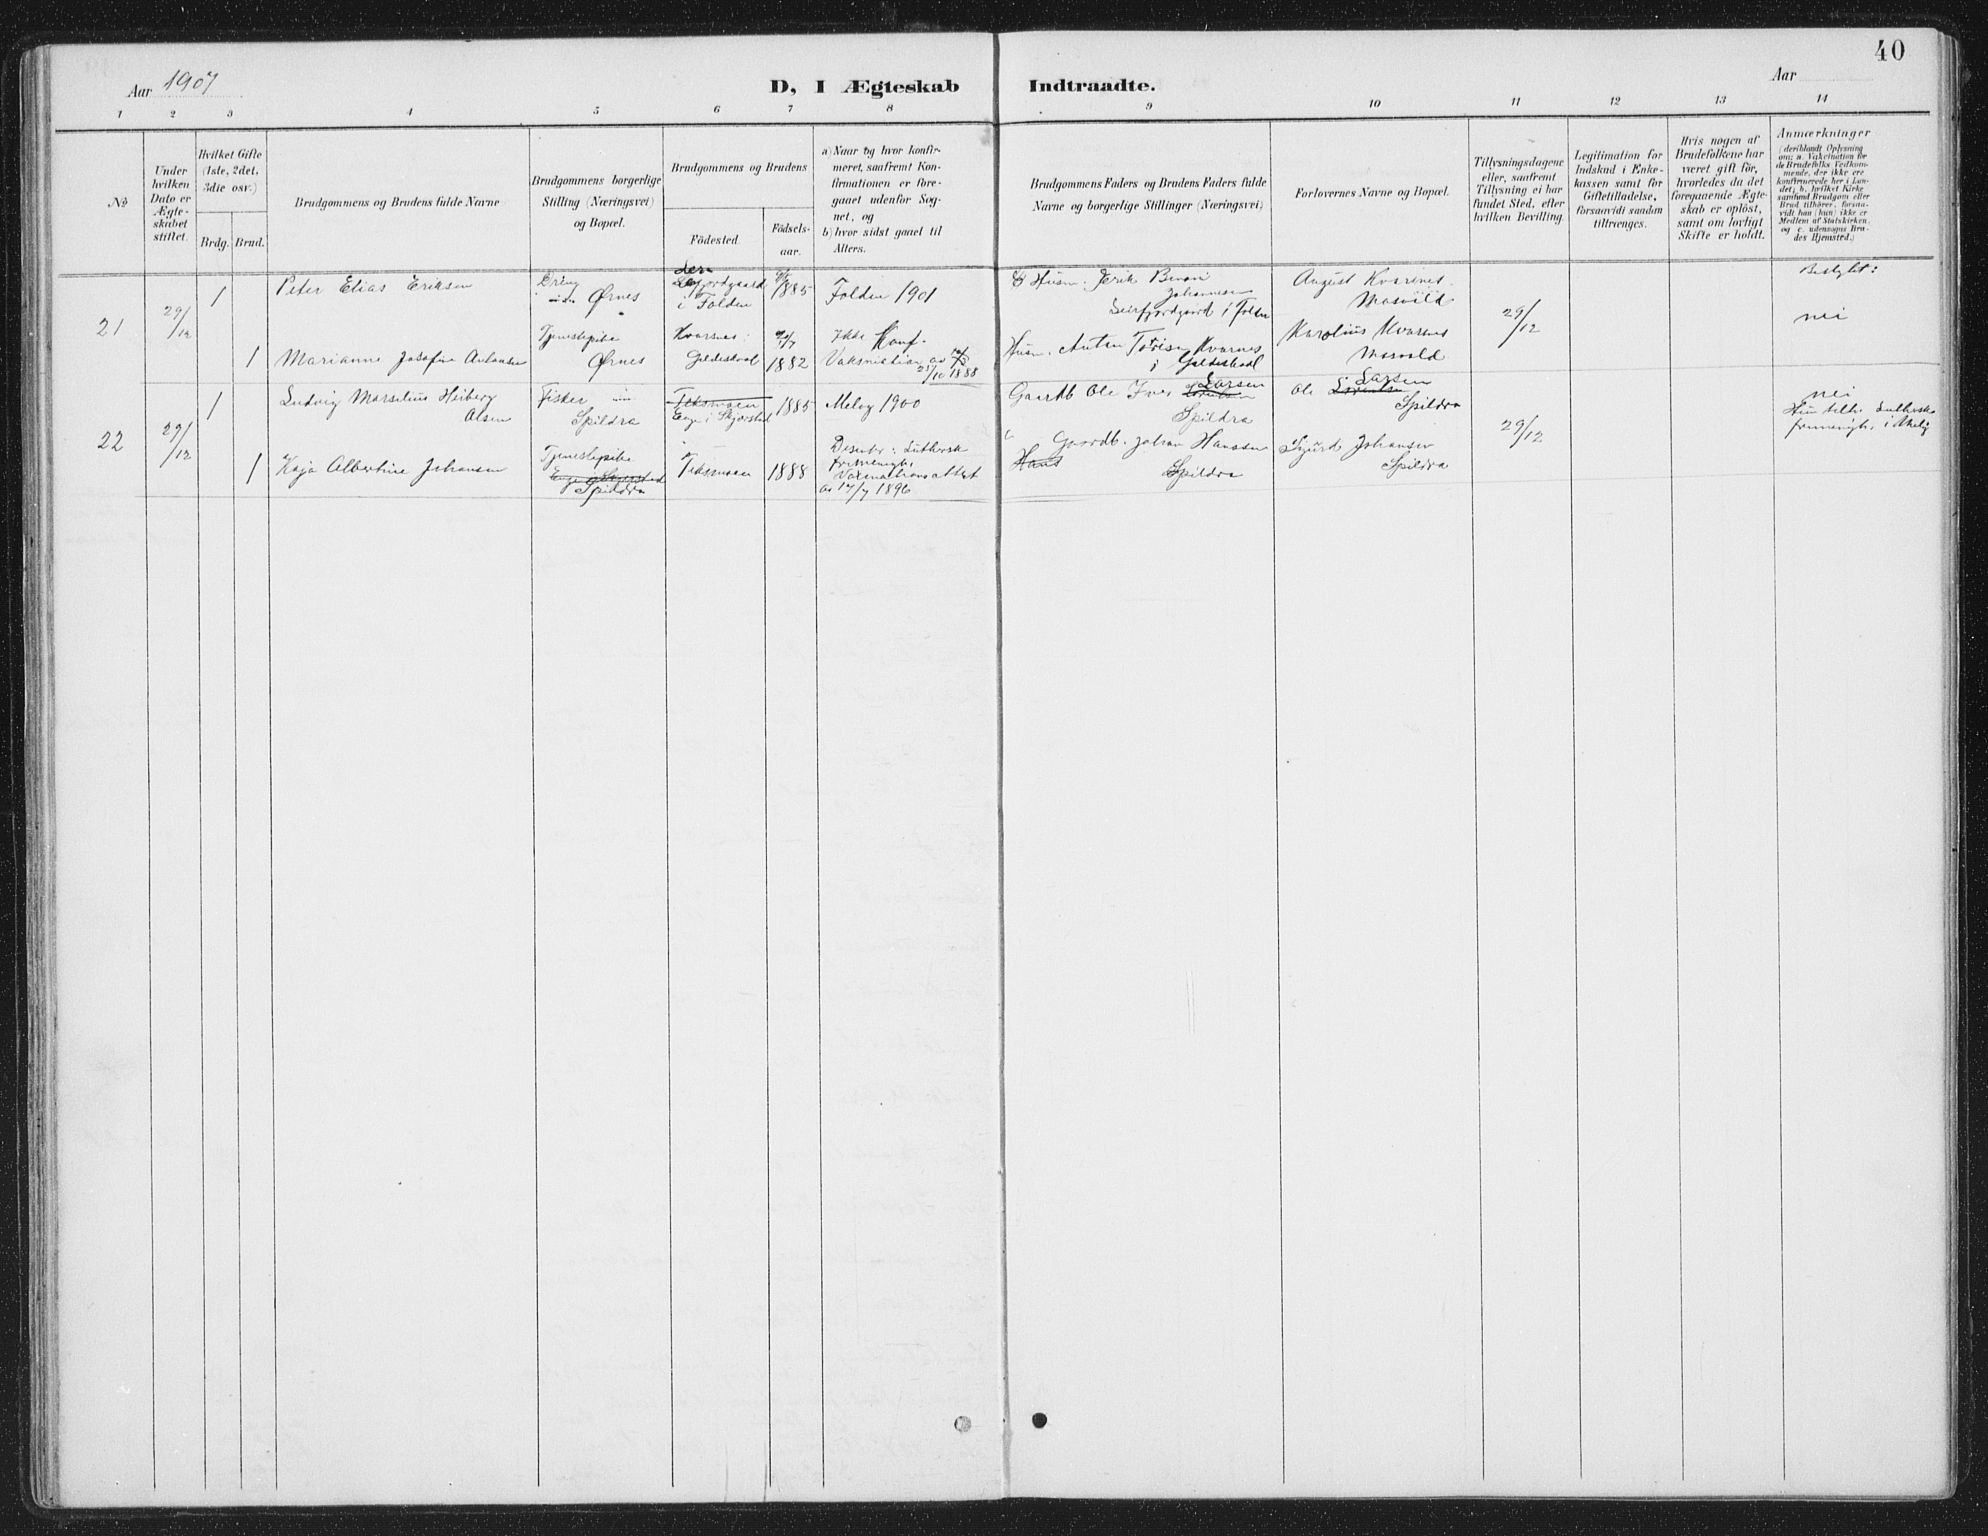 40
Aar 1907
D, I Ægteskab Indtraadte.
Aar
1 2 3 4 5 6 7 8 9 10 11 12 13 14
No
Under hvilken Dato er Ægteskabet stiftet.
Hvilket Gifte (1ste, 2det, 3die osv.)
Brdg. Brud.
Brudgommens og Brudens fulde Navne
Brudgommens borgerlige Stilling (Næringsvei) og Bopæl.
Brudgommens og Brudens
Födested.
Födsels-aar.
a) Naar og hvor konfir-
meret, saafremt Kon-
firmationen er fore-
gaaet udenfor Sog-
net, og
b) hvor sidst gaaet til
Alters.
Brudgommens Faders og Brudens Faders fulde
Navne og borgerlige Stillinger (Næringsvei)
Forlovernes Navne og Bopæl.
Tillysningsdagene
eller, saafremt
Tillysning ei har
fundet Sted, efter
hvilken Bevilling.
Legitimation for
Indskud i Enke-
kassen samt for
Giftetilladelse,
forsaavidt saadan
tiltrænges.
Hvis nogen af
Brudefolkene har
været gift för,
hvorledes da det
foregaaende Ægte-
skab er oplöst,
samt om lovligt
Skifte er holdt.
Anmærkninger
(deriblandt Oplysning
om: a. Vakcination for
de Brudefolks Vedkom-
mende, der ikke ere
konfirmerede her i Lan-
det; b. hvilket Kirke
samfund Brudgom eller
Brud tilhörer, forsaa-
vidt han (hun) ikke er
Medlem af Statskirken,
og c. udensogns Bru-
des Hjemsted.)
21
29/12
1
Peter Elias Eriksen
Ørnes
i Folden
1885
Folden 1901
Husm. Erik
Johannesen
i Folden
August Kvarsnes
29/12
Beslegtet:
nei
1
Marianne Josefine Antonsen
Tjenestepike
Ørnes
Kvarsnes
Gildeskaal
1882
Ikke Konf.
1888
Husm. Anton Kvarnes
i Gildeskaal
Karolius Kvarsnes
22
29/12
1
Ludvig Marselius Heiberg
Olsen
Fisker
Spildra
Enge i
1885
Meløy 1900
Gaardb Ole Iver Larsen
Spildra
Ole Larsen
Spildra
29/12
nei
Hun tilh. Luthersk
1
Kaja Albertine Johansen
Tjenestepike
Spildra
1888
Luthersk
av 17/7 1896
Gaardb. Johan Hanssen
Hans
Spildra
Sigurd Johansen
Spildra